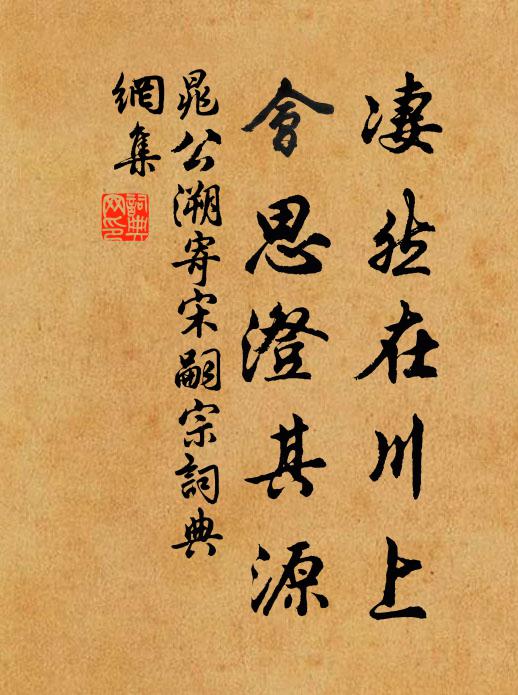 凄然在川上
會思澄其源
晁公溯寄宋嗣宗詞典
網集
詞典
网印